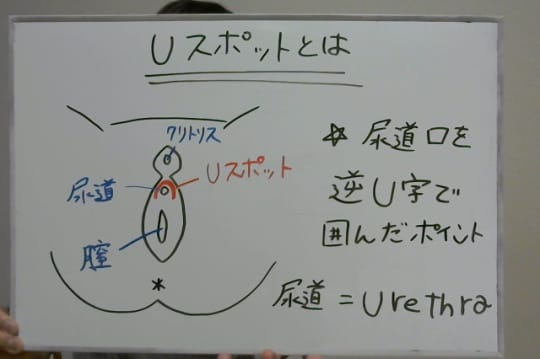 Uスポットとは
クリトリス
Uスポット
尿道
膣
☆ 尿道口を
逆U字で
囲んだポイント
尿道 = Urethra